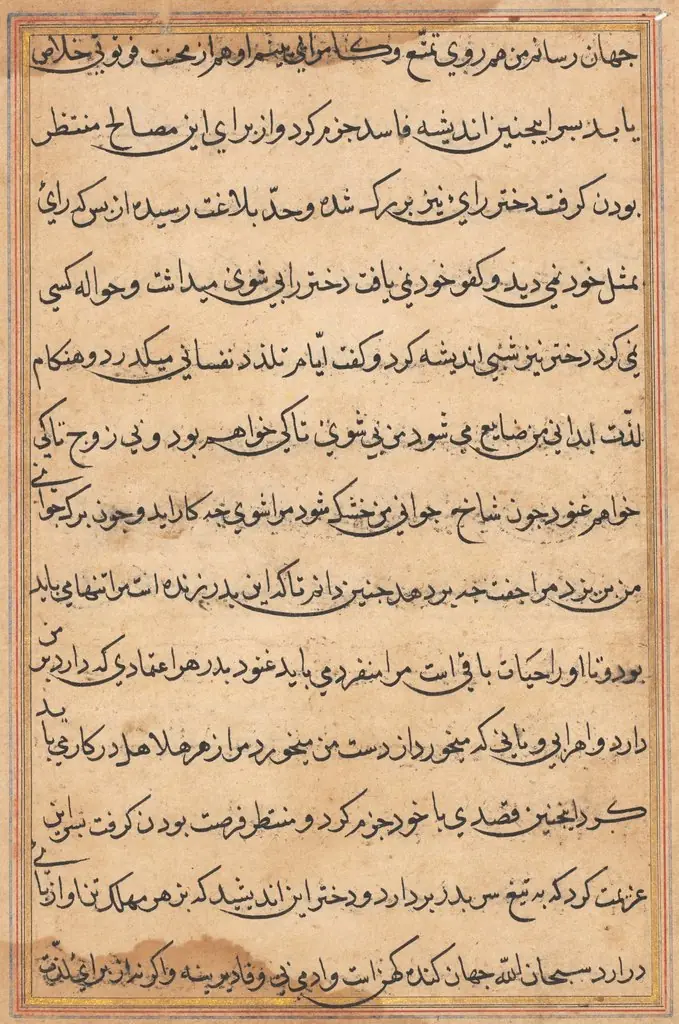 جهان رسانم من هم روی تمتع و کامرانی بینم او هم از محنت فرتوتی خلاص
یابد پسر اینچنین اندیشه فاسد جزم کرد و از برای این مصالح منتظر
بودن کرفت دختر رای نیز بزرک شده و حدّ بلاغت رسیده از بس که رای
بمثل خود نمی دید و کفو خود نمی یافت دختر را بی شوی میداشت و حواله کسی
نمی کرد دختر نیز شبی اندیشه کرد و کفت ایّام تلذد نفسانی میکذرد و هنکام
لذّت ابدانی من ضایع می شود من بی شوی تا کی خواهم بود و بی زوج تا کی
خواهم غنود چون شاخ جوانی من خشک شود مرا شوی چه کار اید و چون برک جوانی
من بریزد مرا جفت چه بر دهد چنین داند تا که این پدر زنده است مرا تنها می باید
بود و تا او را حیات باقی است مرا منفرد می باید غنود پدر هر اعتمادی که دارد بر من
دارد و اهرابی و بانی که میخورد از دست من میخورد مرا زهر هلاهل در کار می باید
کرد اینچنین قصدی با خود جزم کرد و منتظر فرصت بودن کرفت پسر این
عزیمت کرد که به تیغ سر پدر بردارد و دختر این اندیشید که بزهر مهلک تن او از پای
درارد سبحان الله جهان کنده کهن است و ادمی بی وفا دیرینه و اکوند از برای لذّت